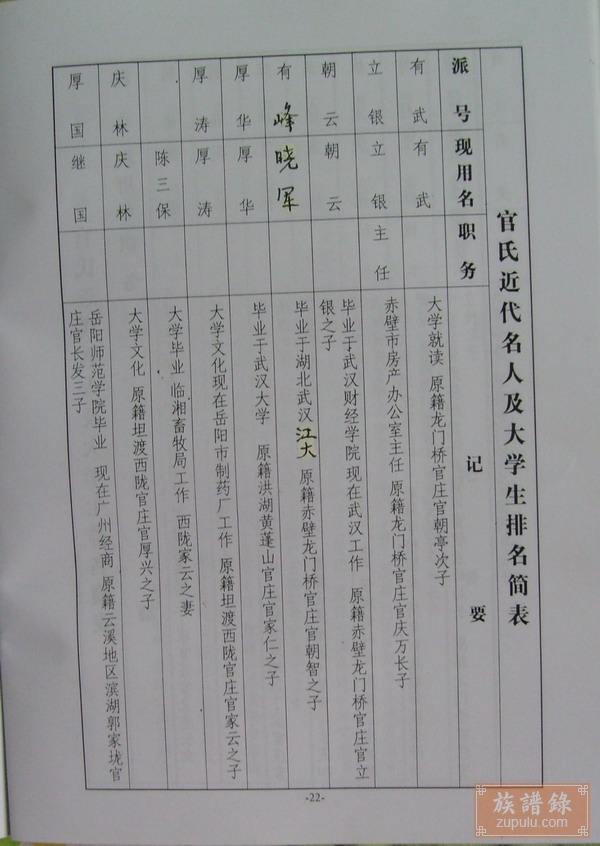 官氏近代名人及大学生排名简表
派号 现用名 职务 记要
有武 有武 大学就读 原籍龙门桥官庄官朝亭次子
立银 立银 主任 赤壁市房产办公室主任 原籍龙门桥官庄官庆万长子
朝云 朝云 毕业于武汉财经学院 现在武汉工作 原籍赤壁龙门桥官庄官立
银之子
有峰 晓军 毕业于湖北武汉江大 原籍赤壁龙门桥官庄官朝智之子
厚华 厚华 毕业于武汉大学 原籍洪湖黄蓬山官庄官家仁之子
厚涛 厚涛 大学文化现在岳阳市制药厂工作 原籍坦渡西陇官庄官家云之子
陈三保 大学毕业 临湘畜牧局工作 西陇家云之妻
庆林 庆林 大学文化 原籍坦渡西陇官庄官厚兴之子
厚国 继国 岳阳师范学院毕业 现在广州经商 原籍云溪地区滨湖郭家垅官
庄官长发三子
-22-
族譜錄
zupulu.com